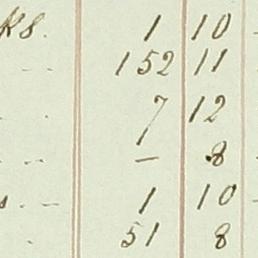 ks. 1 10
152 11
7 12
1
— 8
s. 1 10
51 8